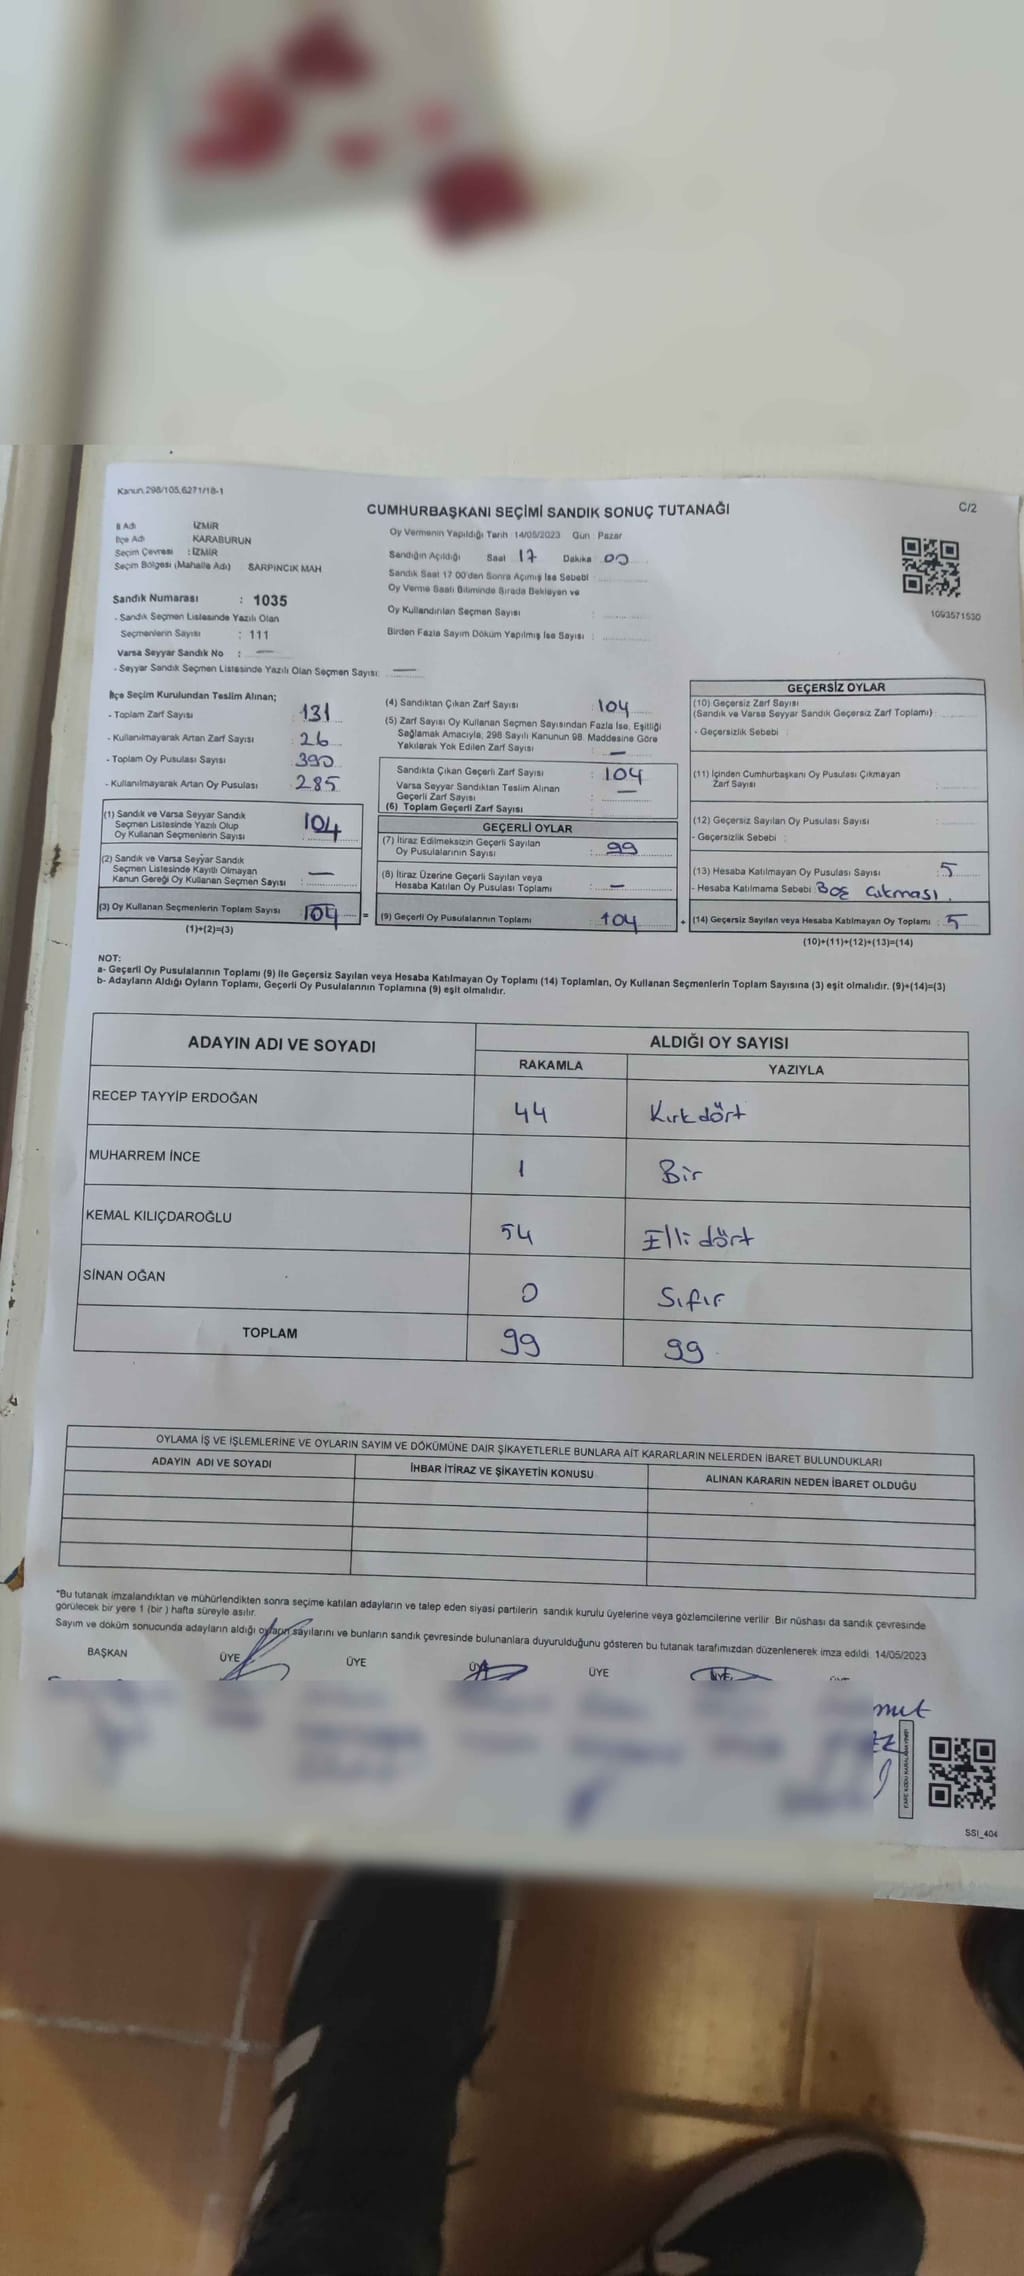 Kanun,298/105,6271/18-1
CUMHURBAŞKANI SEÇİMİ SANDIK SONUÇ TUTANAĞI
C/2
İl Adı İZMİR
İlçe Adı KARABURUN
Seçim Çevresi : İZMİR
Seçim Bölgesi (Mahalle Adı) SARPINCIK MAH
Oy Vermenin Yapıldığı Tarih 14/05/2023 Gün Pazar
Sandığın Açıldığı Saat 17 Dakika 00
Sandık Saat 17 00'den Sonra Açımış İse Sebebi :
Oy Verme Saati Bitiminde Sırada Bekleyen ve
Oy Kullandırılan Seçmen Sayısı :
Birden Fazla Sayım Döküm Yapılmış İse Sayısı :
1093571530
Sandık Numarası : 1035
- Sandık Seçmen Listesinde Yazılı Olan
Seçmenlerin Sayısı : 111
Varsa Seyyar Sandık No : —
- Seyyar Sandık Seçmen Listesinde Yazılı Olan Seçmen Sayısı: —
İlçe Seçim Kurulundan Teslim Alınan;
- Toplam Zarf Sayısı : 131
- Kullanılmayarak Artan Zarf Sayısı : 26
- Toplam Oy Pusulası Sayısı : 390
- Kullanılmayarak Artan Oy Pusulası : 285
(1) Sandık ve Varsa Seyyar Sandık
Seçmen Listesinde Yazılı Olup
Oy Kullanan Seçmenlerin Sayısı : 104
(2) Sandık ve Varsa Seyyar Sandık
Seçmen Listesinde Kayıtlı Olmayan
Kanun Gereği Oy Kullanan Seçmen Sayısı : —
(3) Oy Kullanan Seçmenlerin Toplam Sayısı : 104 =
(1)+(2)=(3)
(4) Sandıktan Çıkan Zarf Sayısı : 104
(5) Zarf Sayısı Oy Kullanan Seçmen Sayısından Fazla İse, Eşitliği
Sağlamak Amacıyla, 298 Sayılı Kanunun 98. Maddesine Göre
Yakılarak Yok Edilen Zarf Sayısı : —
Sandıkta Çıkan Geçerli Zarf Sayısı : 104
Varsa Seyyar Sandıktan Teslim Alınan
Geçerli Zarf Sayısı : —
(6) Toplam Geçerli Zarf Sayısı :
GEÇERLİ OYLAR
(7) İtiraz Edilmeksizin Geçerli Sayılan
Oy Pusulalarının Sayısı : 99
(8) İtiraz Üzerine Geçerli Sayılan veya
Hesaba Katılan Oy Pusulası Toplamı : —
(9) Geçerli Oy Pusulalarının Toplamı : 104 +
GEÇERSİZ OYLAR
(10) Geçersiz Zarf Sayısı
(Sandık ve Varsa Seyyar Sandık Geçersiz Zarf Toplamı) :
- Geçersizlik Sebebi :
(11) İçinden Cumhurbaşkanı Oy Pusulası Çıkmayan
Zarf Sayısı :
(12) Geçersiz Sayılan Oy Pusulası Sayısı :
- Geçersizlik Sebebi :
(13) Hesaba Katılmayan Oy Pusulası Sayısı : 5
- Hesaba Katılmama Sebebi : Boş çıkması.
(14) Geçersiz Sayılan veya Hesaba Katılmayan Oy Toplamı : 5
(10)+(11)+(12)+(13)=(14)
NOT:
a- Geçerli Oy Pusulalarının Toplamı (9) ile Geçersiz Sayılan veya Hesaba Katılmayan Oy Toplamı (14) Toplamları, Oy Kullanan Seçmenlerin Toplam Sayısına (3) eşit olmalıdır. (9)+(14)=(3)
b- Adayların Aldığı Oyların Toplamı, Geçerli Oy Pusulalarının Toplamına (9) eşit olmalıdır.
ADAYIN ADI VE SOYADI
ALDIĞI OY SAYISI
RAKAMLA YAZIYLA
RECEP TAYYİP ERDOĞAN 44 Kırkdört
MUHARREM İNCE 1 Bir
KEMAL KILIÇDAROĞLU 54 Elli dört
SİNAN OĞAN 0 Sıfır
TOPLAM 99 99
OYLAMA İŞ VE İŞLEMLERİNE VE OYLARIN SAYIM VE DÖKÜMÜNE DAİR ŞİKAYETLERLE BUNLARA AİT KARARLARIN NELERDEN İBARET BULUNDUKLARI
ADAYIN ADI VE SOYADI
İHBAR İTİRAZ VE ŞİKAYETİN KONUSU
ALINAN KARARIN NEDEN İBARET OLDUĞU
*Bu tutanak imzalandıktan ve mühürlendikten sonra seçime katılan adayların ve talep eden siyasi partilerin sandık kurulu üyelerine veya gözlemcilerine verilir Bir nüshası da sandık çevresinde
görülecek bir yere 1 (bir ) hafta süreyle asılır.
Sayım ve döküm sonucunda adayların aldığı oyların sayılarını ve bunların sandık çevresinde bulunanlara duyurulduğunu gösteren bu tutanak tarafımızdan düzenlenerek imza edildi. 14/05/2023
BAŞKAN ÜYE ÜYE ÜYE ÜYE ÜYE
SSI_404